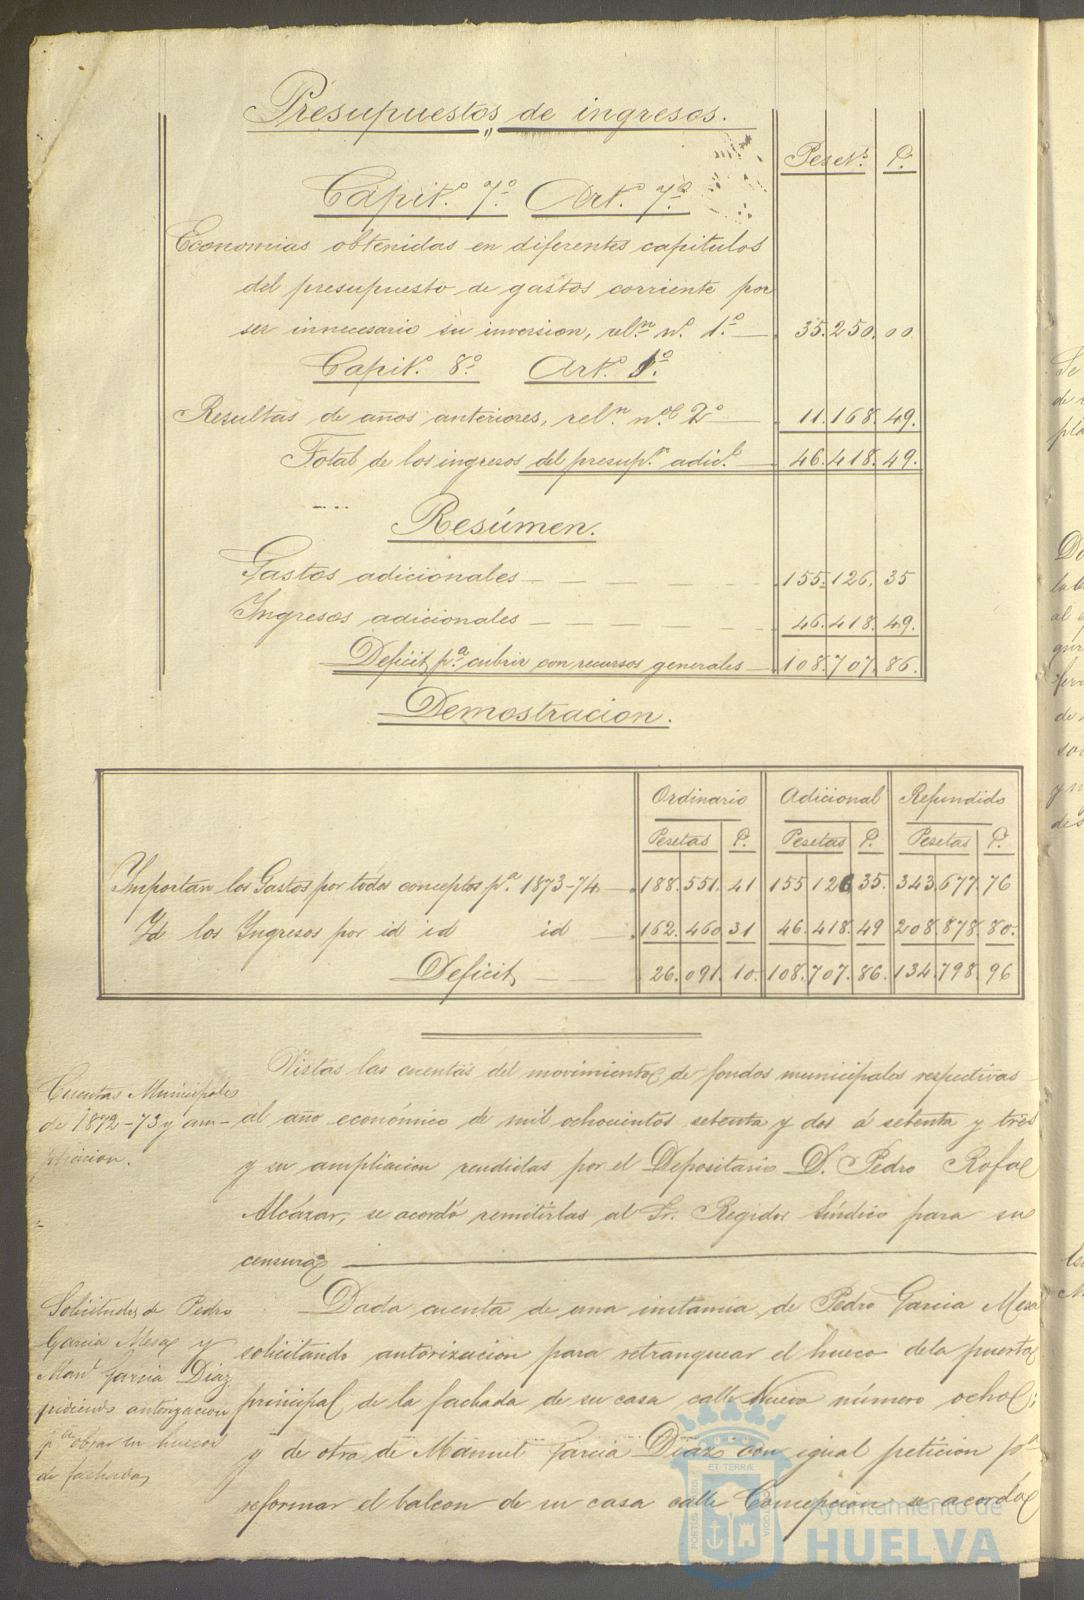 Presupuestos de ingresos.
Peset.s P.s
Capit.o 7.o Art.o 7.o
Economias obtenidas en diferentes capitulos
del presupuesto de gastos corriente por
ser innecesario su inversion, rel.n n.o 1.o 35.250.00
Capit.o 8.o Art.o 1.o
Resultas de años anteriores, rel.n n.o 2.o 11.168.49.
Total de los ingresos del presup.to adic.l 46.418.49.
Resúmen.
Gastos adicionales 155.126.35
Ingresos adicionales 46.418.49.
Deficit p.a cubrir con recursos generales 108.707.86.
Demostracion.
Ordinario Adicional Refundido
Pesetas P.s Pesetas P.s Pesetas P.s
Importan los Gastos por todos conceptos p.a 1873-74. 188.551.41 155.126.35. 343.677.76
Id los Ingresos por id id id 162.460.31 46.418.49 208.878.80.
Deficit 26.091.10. 108.707.86. 134.798.96
Cuentas Municipales
de 1872-73 y am-
pliacion.
Vistas las cuentas del movimiento de fondos municipales respectivas
al año económico de mil ochocientos setenta y dos á setenta y tres
y su ampliacion rendidas por el Depositario D. Pedro Rofa
Alcázar, se acordó remitirlas al Sr. Regidor Síndico para su
censura
Solicitudes de Pedro
Garcia Mesa y
Man.l Garcia Diaz
pidiendo autorizacion
p.a obrar en huecos
de fachadas
Dada cuenta de una instancia de Pedro Garcia Mesa
solicitando autorizacion para retranquear el hueco dela puerta
principal de la fachada de su casa calle Nueva número ocho;
y de otra de Manuel Garcia Diaz con igual peticion p.a
reformar el balcon de su casa calle Concepcion se acordó
ET TERRÆ
PORTUS MARIS
CUSTODIA
Ayuntamiento de
HUELVA